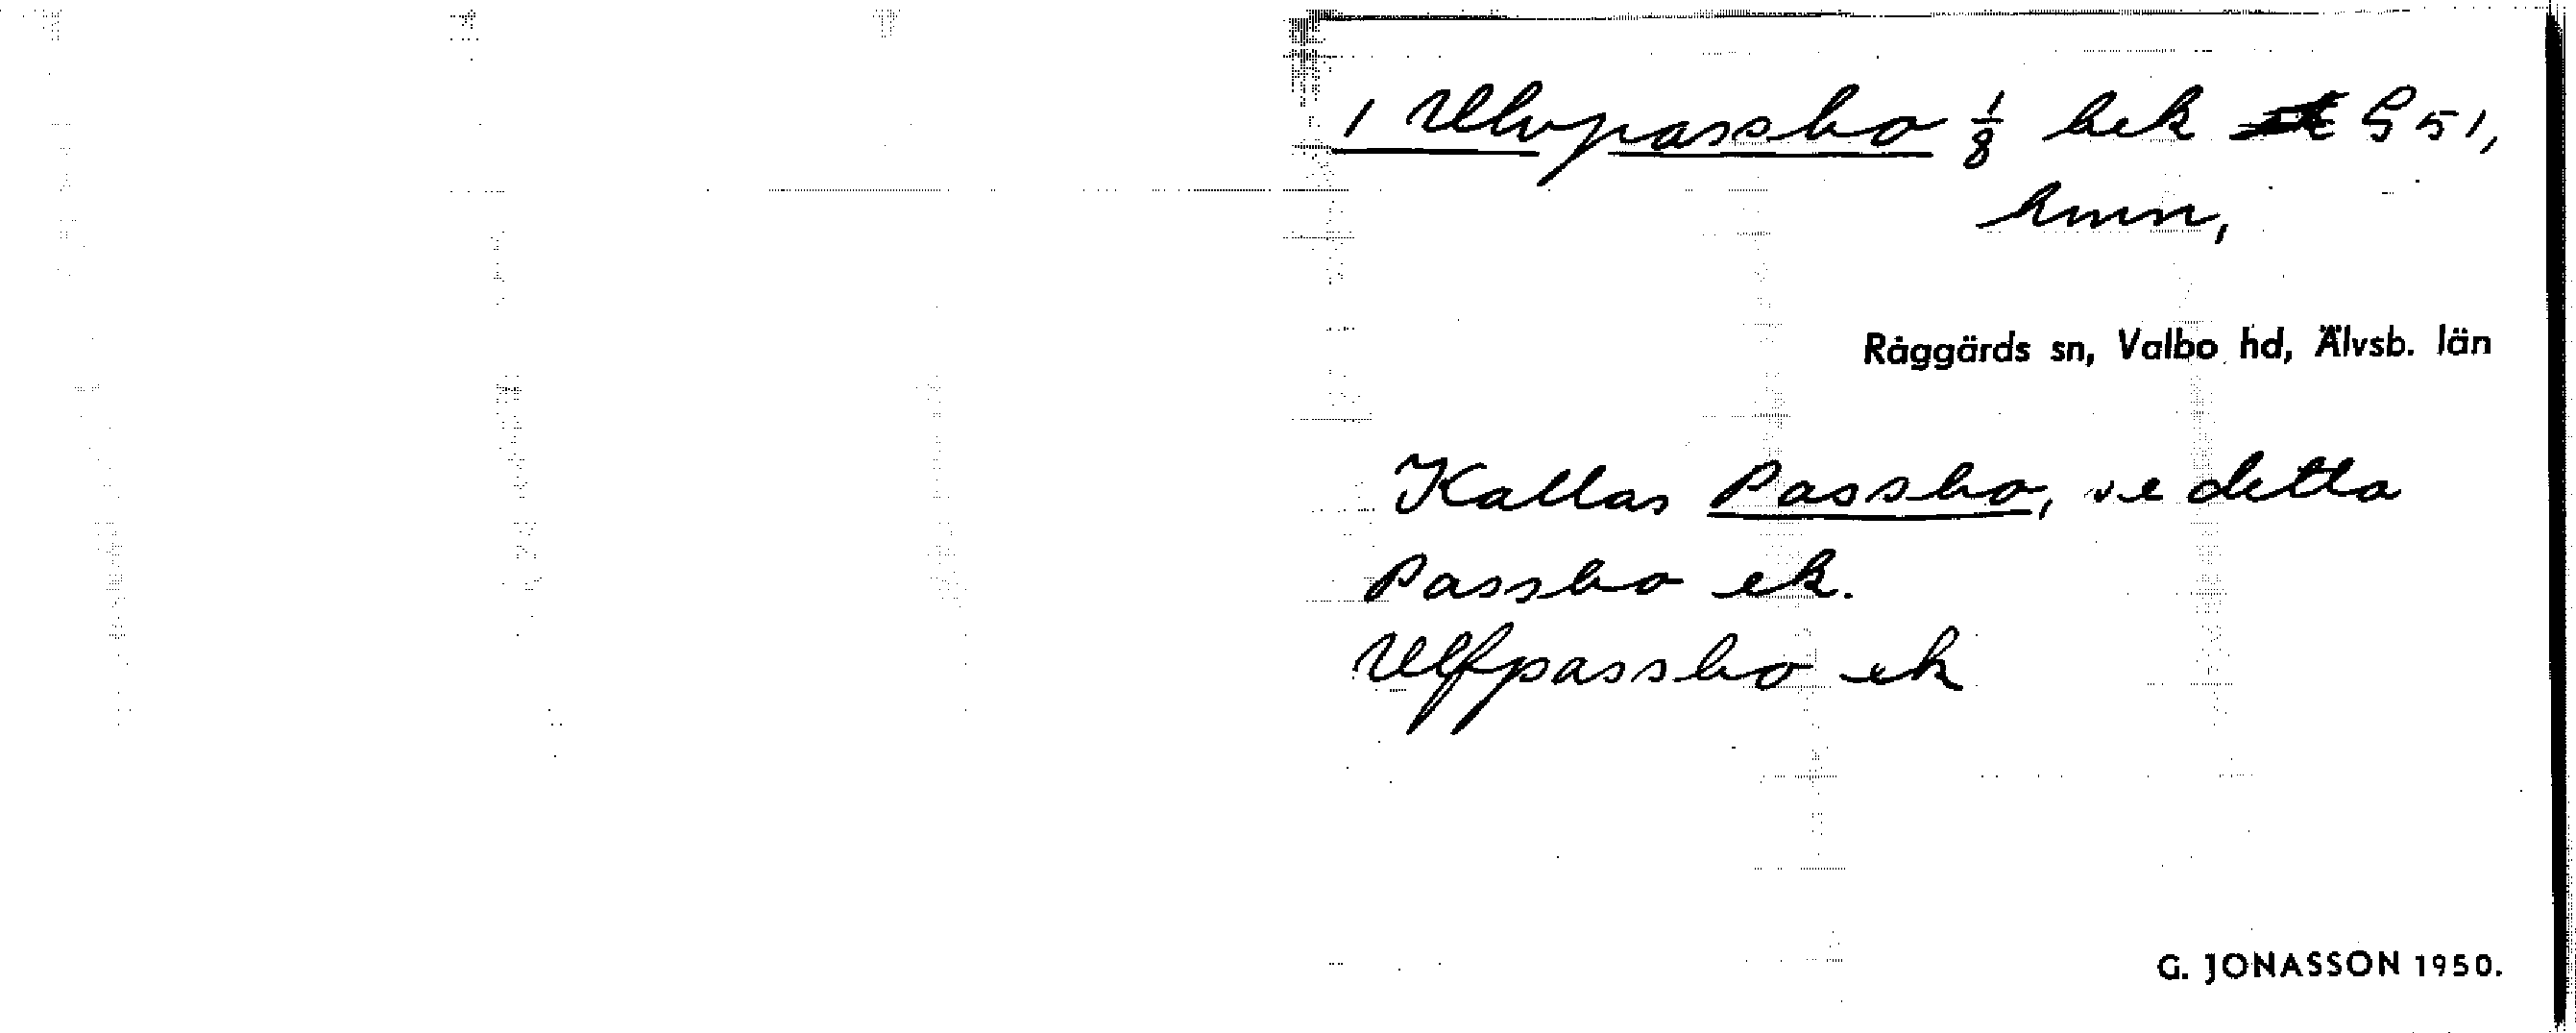 1 Ulvpassbo 1/8 bek G 51,
hmn,
Råggärds sn, Valbo hd, Älvsb. län
Kallas Passbo, se detta
Passbo ek.
Ulfpassbo ek
G. JONASSON 1950.